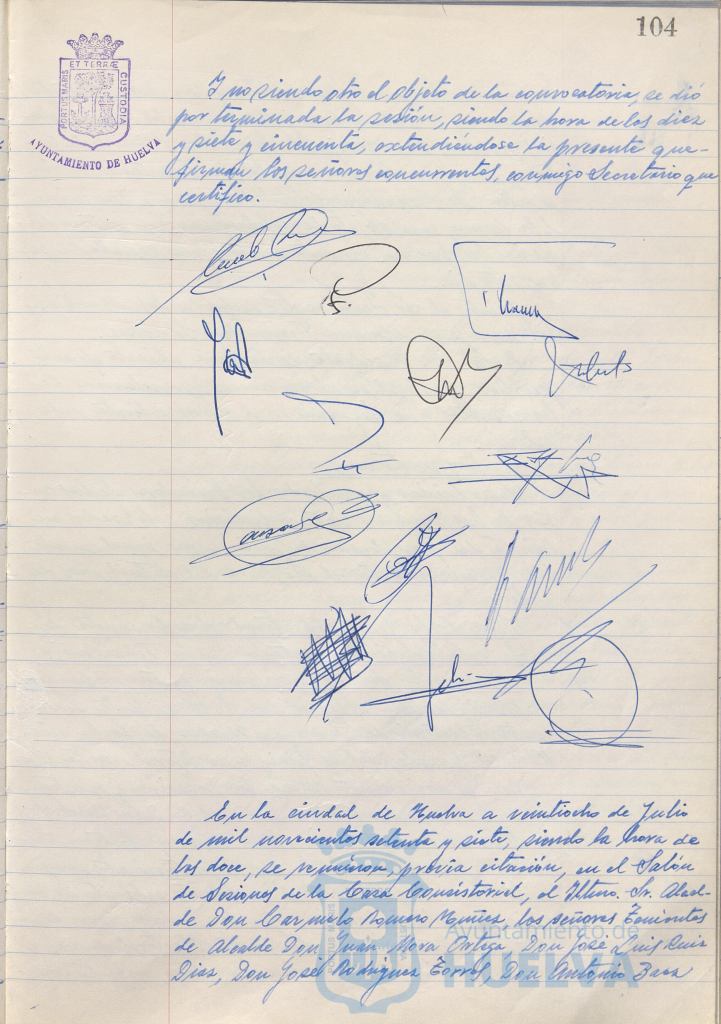 104
ET TERRÆ
PORTUS MARIS
CUSTODIA
AYUNTAMIENTO DE HUELVA
Y no siendo otro el objeto de la convocatoria, se dió
por terminada la sesión, siendo la hora de las diez
y siete y cincuenta, extendiéndose la presente que
firman los señores concurrentes, conmigo Secretario que
certifico.
En la ciudad de Huelva a veintiocho de Julio
de mil novecientos setenta y siete, siendo la hora de
las doce, se reunieron, previa citación, en el Salón
de Sesiones de la Casa Consistorial, el Iltmo. Sr. Alcal-
de Don Carmelo Romero Muñez, los señores Tenientes
de Alcalde Don Juan Mora Ortega, Don José Luis Ruiz
Diaz, Don José Rodriguez Torres, Don Antonio Baza
Ayuntamiento de
HUELVA